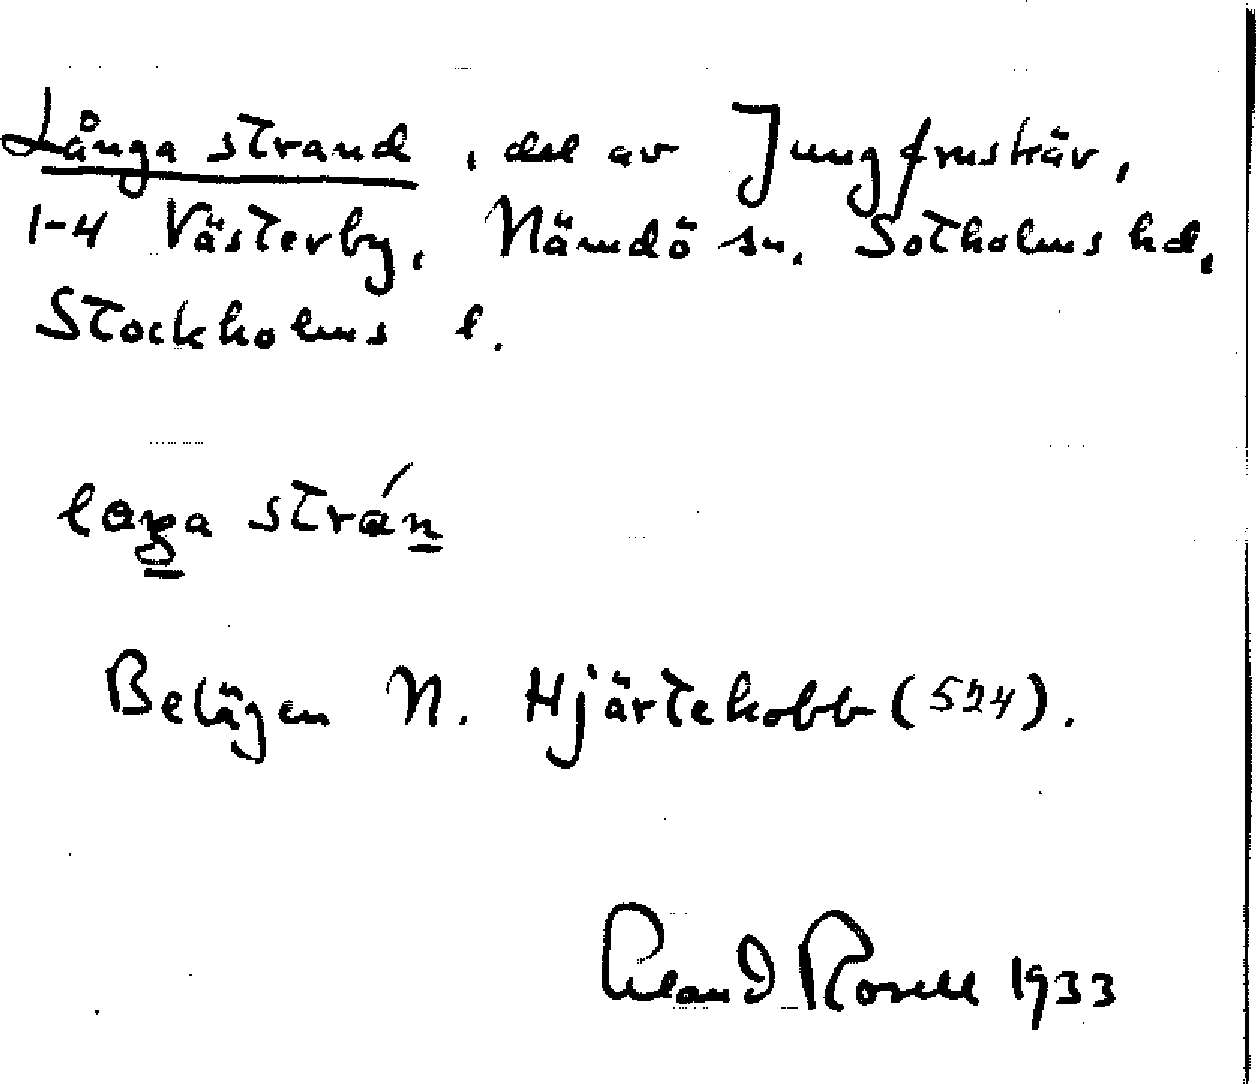 Långa strand, del av Jungfruskär,
1-4 Västerby, Nämdö sn, Sotholms hd,
Stockholms l.
strán
Belägen N. Hjärtekobb (524).
Rosell 1933